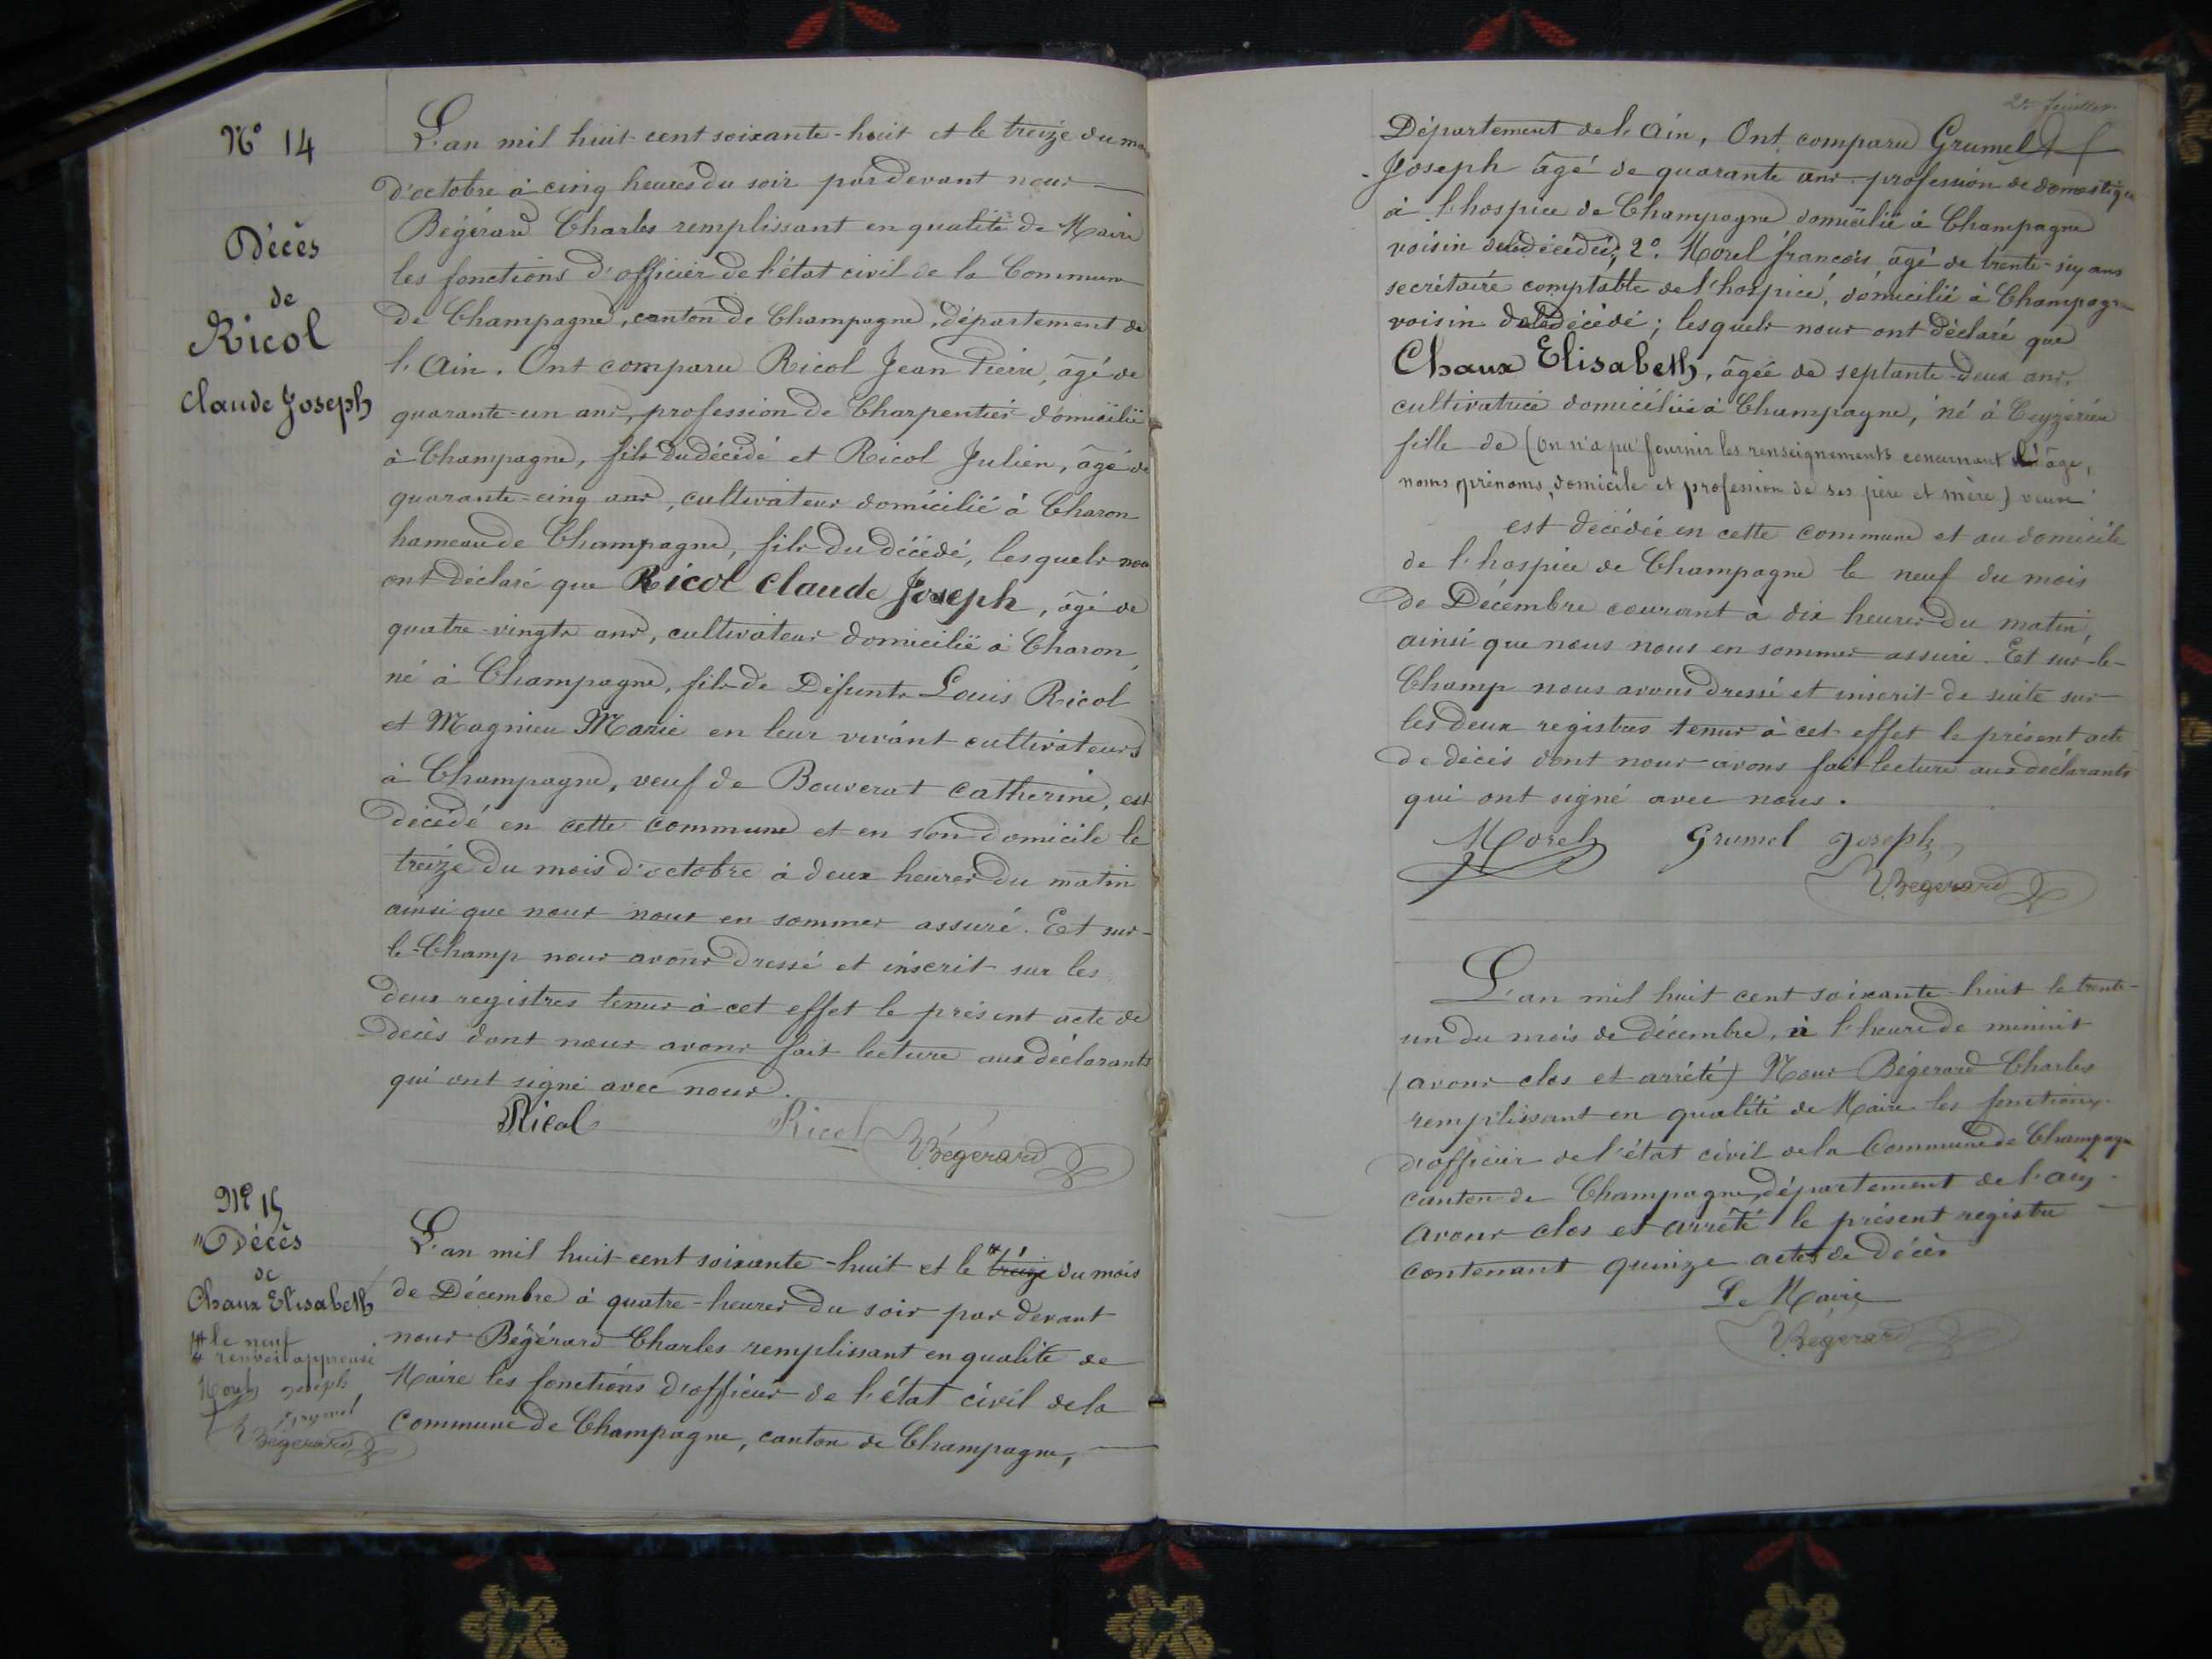 N° 14
Décès
de
Ricol
Claude Joseph
L'an mil huit-cent soixante-huit et le treize du
d'octobre à cinq heures du soir pardevant nous
Bégérard Charles remplissant en qualité de Maire
les fonctions d'officier de l'état civil de la Commune
de Champagne, canton de Champagne, département de
l'Ain. Ont comparu Ricol Jean Pierre, âgé de
quarante-un ans, profession de Charpentier domicilié
à Champagne, fils du décédé et Ricol Julien, âgé de
quarante-cinq ans, cultivateur domicilié à Charon
hameau de Champagne, fils du décédé, lesquels nous
ont déclaré que Ricol Claude Joseph, âgé de
quatre-vingts ans, cultivateur domicilié à Charon,
né à Champagne, fils de Défunts Louis Ricol
et Magnieu Marie en leur vivant cultivateurs
à Champagne, veuf de Bouverat Catherine, est
décédé en cette commune et en son domicile le
treize du mois d'octobre à deux heures du matin
ainsi que nous nous en sommes assuré. Et sur-
le-Champ nous avons dressé et inscrit sur les
deux registres tenus à cet effet le présent acte de
décès dont nous avons fait lecture aux déclarants
qui ont signé avec nous.
Ricol Ricol Bégerard
N° 15
Décès
de
Chaux Elisabeth
# le neuf
# renvoi approuvé
Morel Joseph
Grumel
Bégerard
L'an mil huit-cent soixante-huit et le # treize du mois
de Décembre à quatre-heures du soir par devant
nous Bégérard Charles remplissant en qualité de
Maire les fonctions d'officier de l'état civil de la
Commune de Champagne, canton de Champagne,
2e feuillet
Département de l'Ain, Ont comparu Grumel
Joseph âgé de quarante ans profession de domestique
à l'hospice de Champagne domicilié à Champagne
voisin de la décédée, 2° Morel françois âgé de trente-six ans
secrétaire comptable de l'hospice, domicilié à Champagne
voisin de la décédé; lesquels nous ont déclaré que
Chaux Elisabeth, âgée de septante-deux ans,
cultivatrice domiciliée à Champagne, né à Ceyzérieu
fille de (on n'a pu fournir les renseignements concernant l'âge,
noms prénoms, domicile et profession de ses père et mère) veuve
est décédée en cette commune et au domicile
de l'hospice de Champagne le neuf du mois
de Décembre courant à dix heures du matin,
ainsi que nous nous en sommes assuré. Et sur-le-
Champ nous avons dressé et inscrit de suite sur
les deux registres tenus à cet effet le présent acte
de décès dont nous avons fait lecture aux déclarants
qui ont signé avec nous.
Morel Grumel Joseph
Bégerard
L'an mil huit cent soixante-huit le trente-
un du mois de décembre, à l'heure de minuit
(avons clos et arrêté) Nous Bégerard Charles
remplissant en qualité de Maire les fonctions
d'officier de l'état civil de la Commune de Champagne
canton de Champagne, département de l'ain
avons clos et arrêté le présent registre
contenant quinze actes de décès
Le Maire
Bégerard